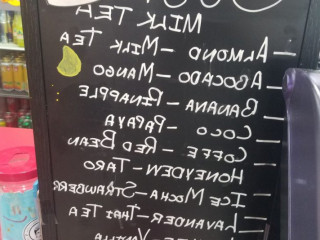 MILK TEA
— ALMOND – MILK TEA
— AVOCADO – MANGO
— BANANA – PINAPPLE
— COCO – PAPAYA
— COFFE – RED BEAN
HONEYDEN – TARO
— ICE MOCHA – STRAWBERR
— LAVANDER – THAI TEA
VANILLA